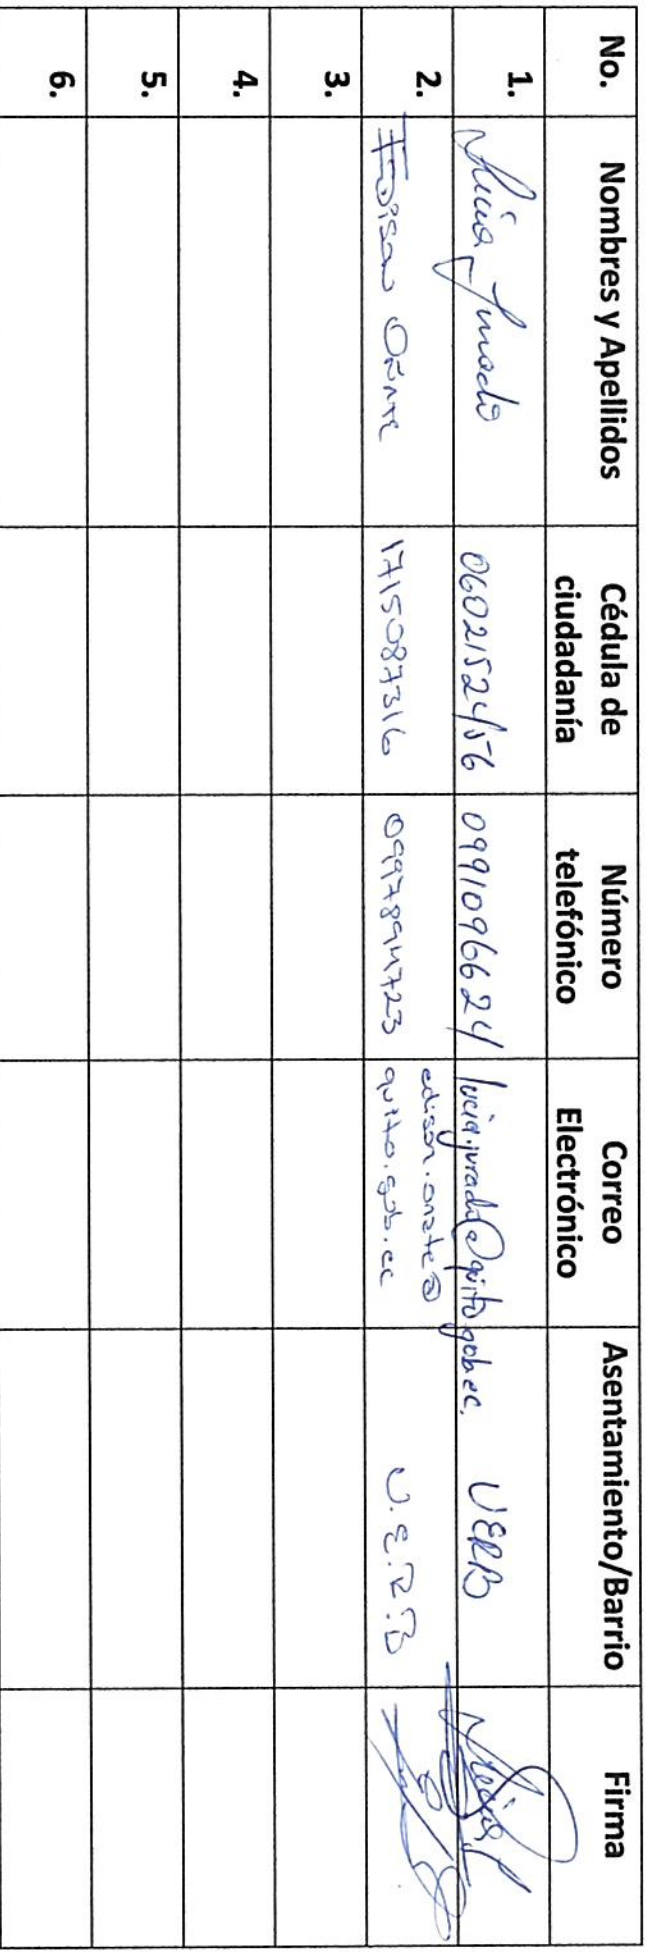 No. Nombres y Apellidos Cédula de ciudadanía Número telefónico Correo Electrónico Asentamiento/Barrio Firma
1. Lucía Jurado 0602152456 0991096624 lucia.jurado@quito.gob.ec. UERB
2. Edison Oñate 1715087316 0997894723 edison.onate@
quito.gob.ec U.E.R.B
3.
4.
5.
6.